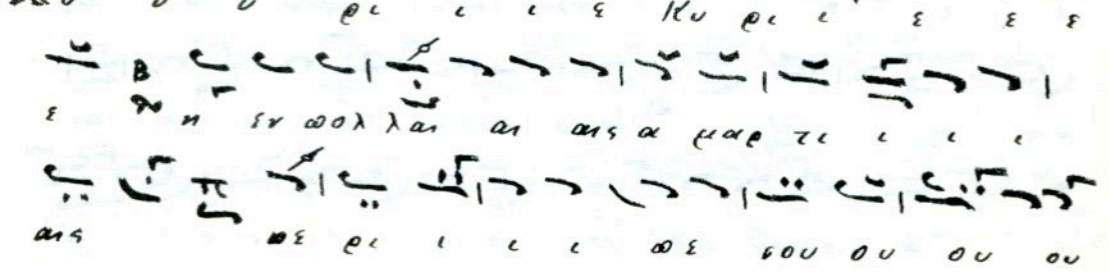 ρι ι ι ε Κυ ρι ι ε ε ε
ε η εν πολ λαι αι αις α μαρ τι ι ι ι
αις πε ρι ι ι ι πε σου ου ου ου